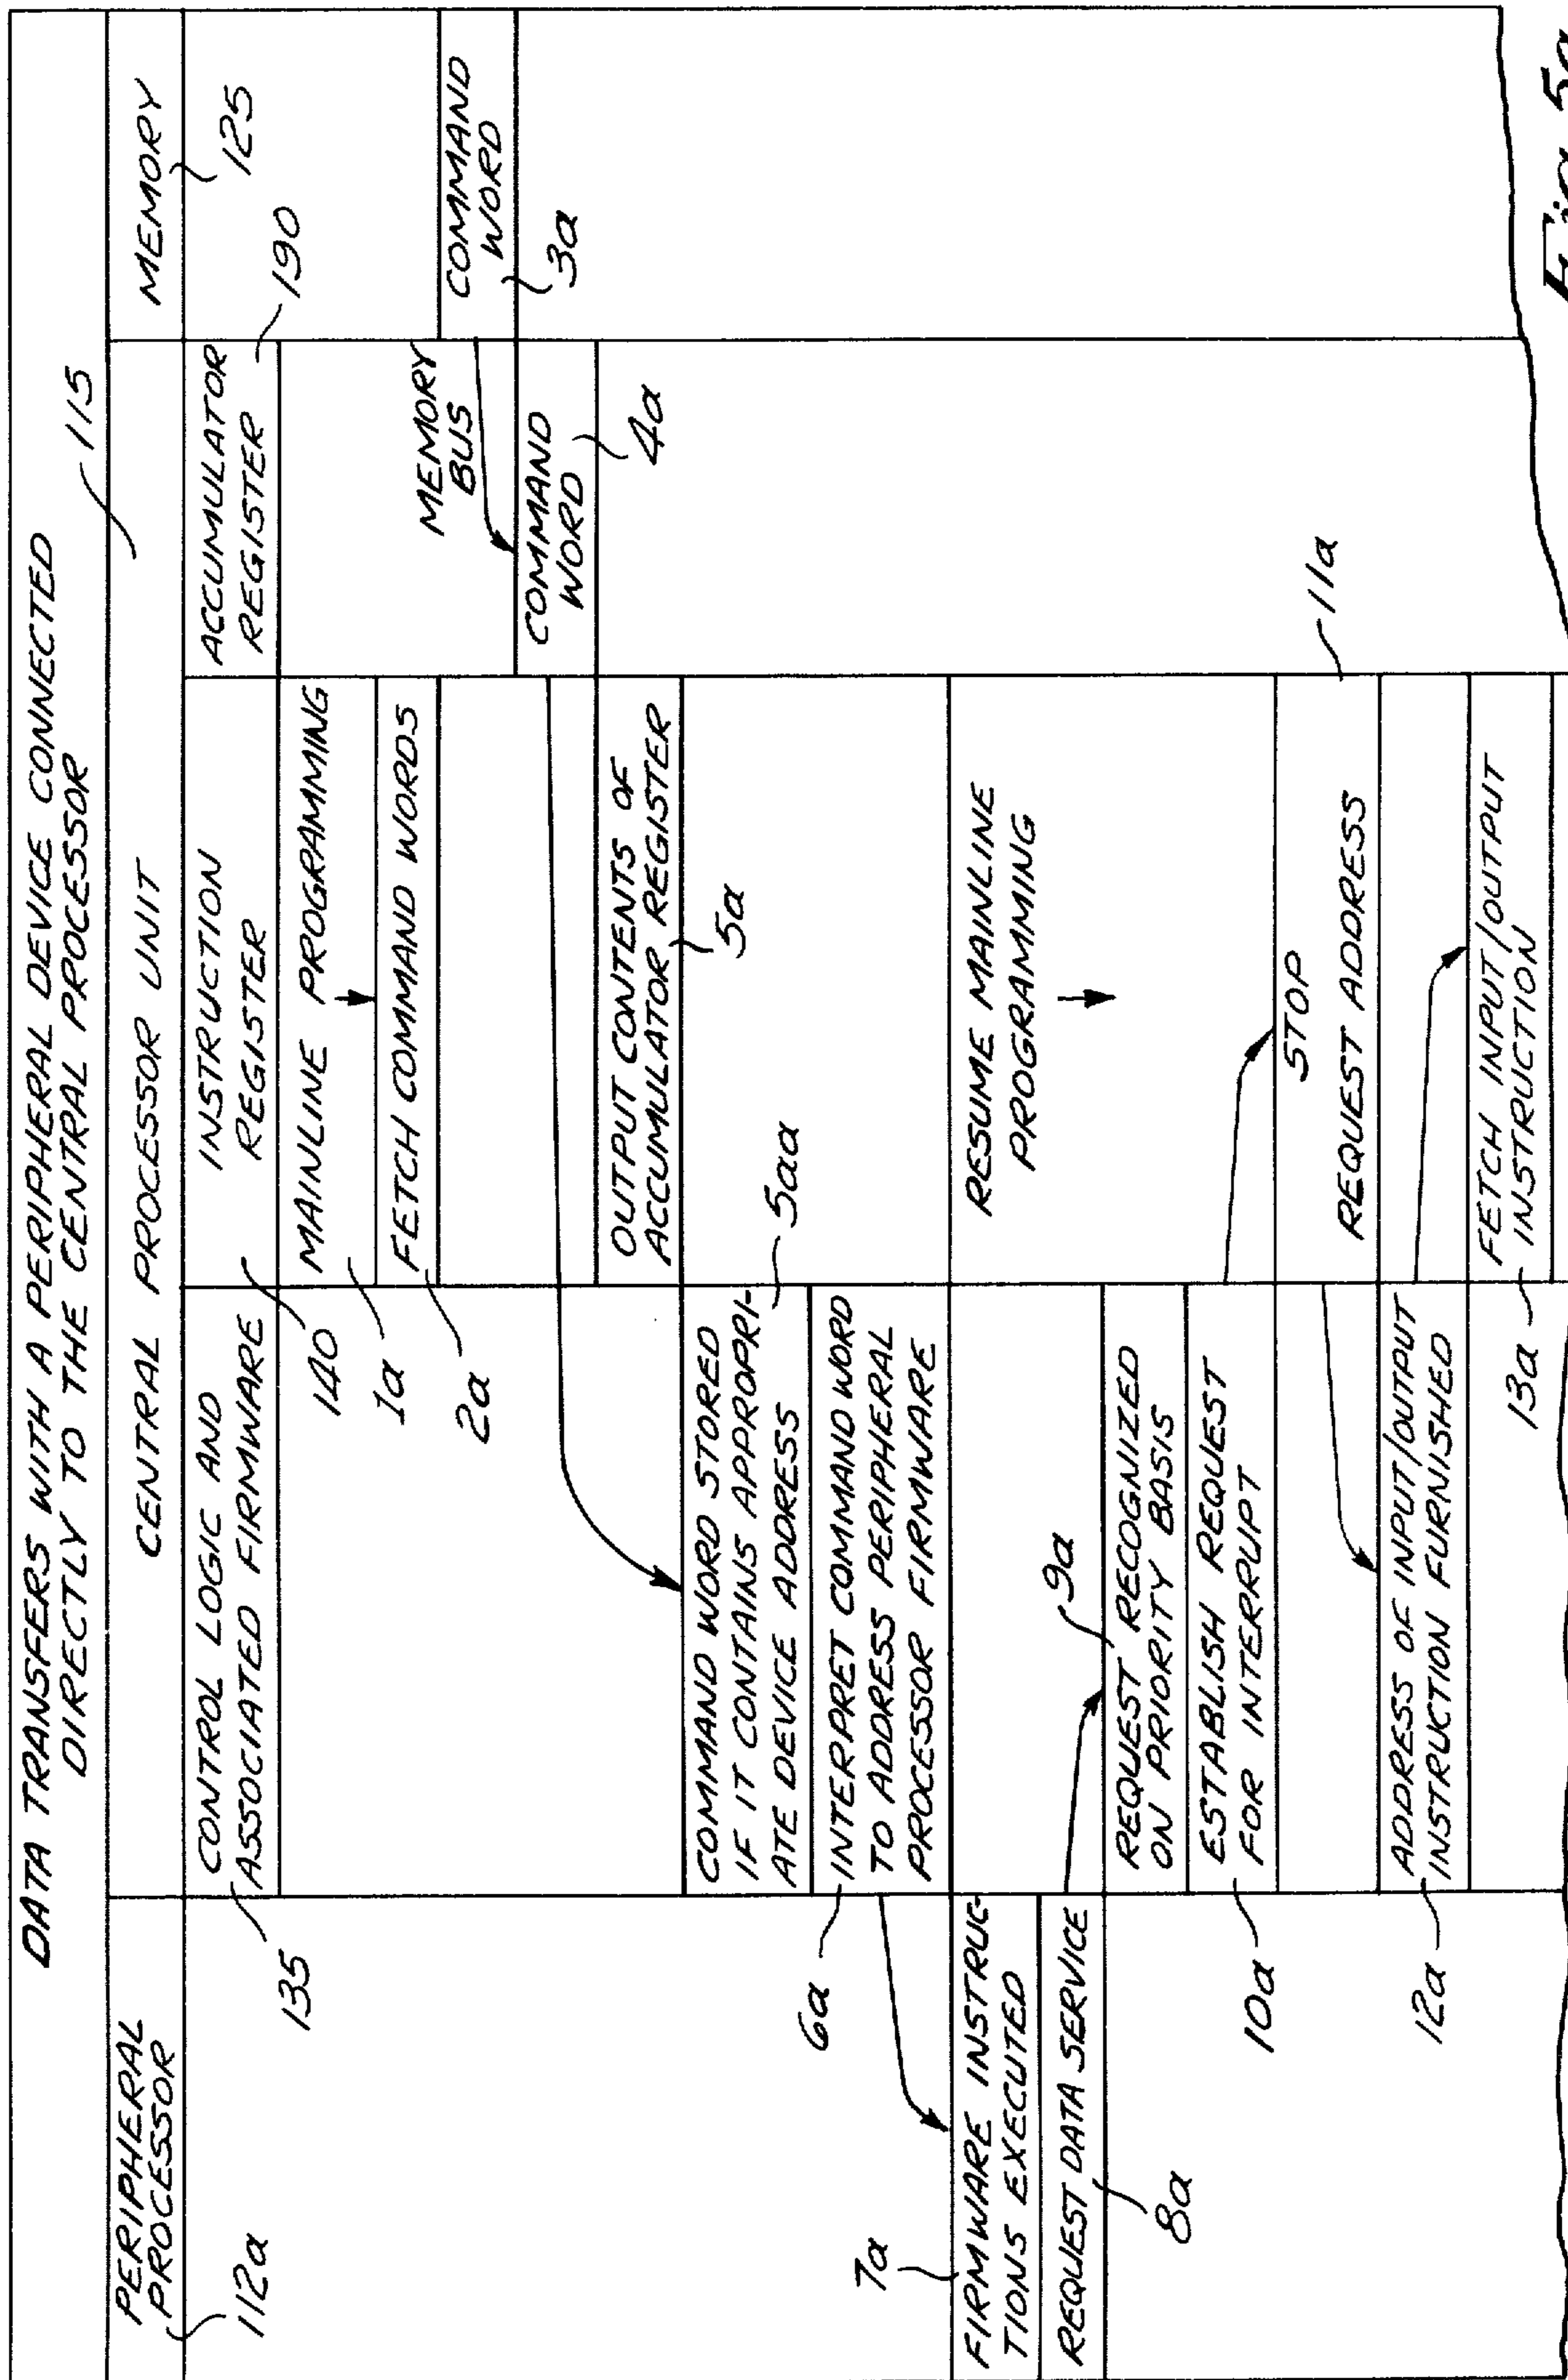 DATA TRANSFERS WITH A PERIPHERAL DEVICE CONNECTED
DIRECTLY TO THE CENTRAL PROCESSOR
PERIPHERAL
PROCESSOR
112a
CENTRAL PROCESSOR UNIT
115
MEMORY
125
CONTROL LOGIC AND
ASSOCIATED FIRMWARE
135
INSTRUCTION
REGISTER
140
ACCUMULATOR
REGISTER
190
MAINLINE PROGRAMMING
1a
FETCH COMMAND WORDS
2a
MEMORY
BUS
COMMAND
WORD
3a
COMMAND
WORD
4a
OUTPUT CONTENTS OF
ACCUMULATOR REGISTER
5a
COMMAND WORD STORED
IF IT CONTAINS APPROPRI-
ATE DEVICE ADDRESS
5aa
INTERPRET COMMAND WORD
TO ADDRESS PERIPHERAL
PROCESSOR FIRMWARE
6a
7a
FIRMWARE INSTRUC-
TIONS EXECUTED
RESUME MAINLINE
PROGRAMMING
REQUEST DATA SERVICE
8a
9a
REQUEST RECOGNIZED
ON PRIORITY BASIS
ESTABLISH REQUEST
FOR INTERRUPT
10a
STOP
REQUEST ADDRESS
11a
ADDRESS OF INPUT/OUTPUT
INSTRUCTION FURNISHED
12a
FETCH INPUT/OUTPUT
INSTRUCTION
13a
Fig. 5a